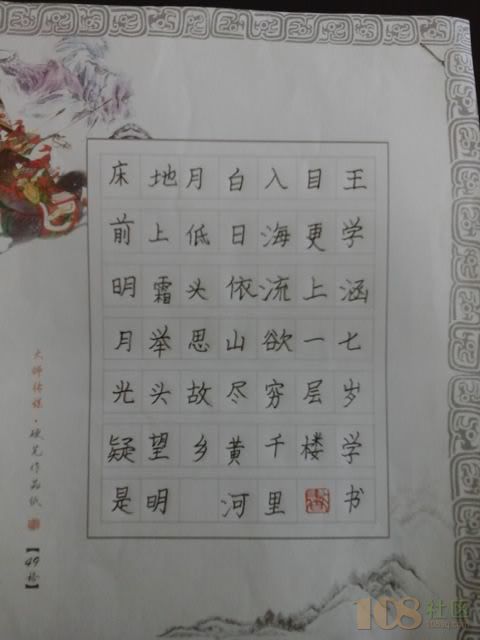 床前明月光疑是
地上霜举头望明
月低头思故乡
白日依山尽黄河
入海流欲穷千里
目更上一层楼
王学涵七岁学书
大师传媒·硬笔作品纸
【49格】
108社区